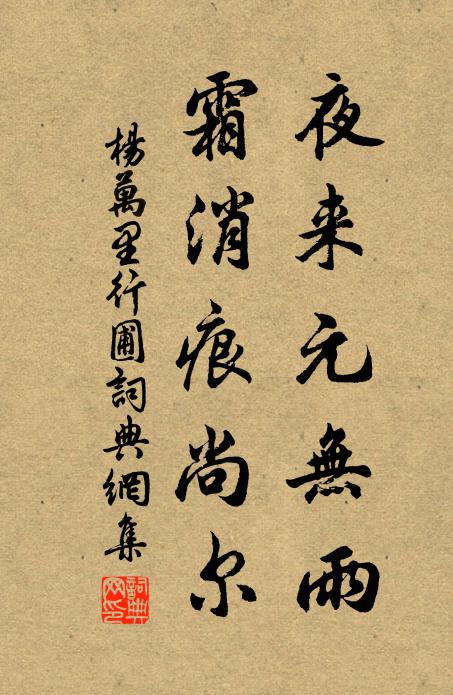 夜来元無雨
霜消痕尚尔
楊萬里行圃詞典網集
詞典网印